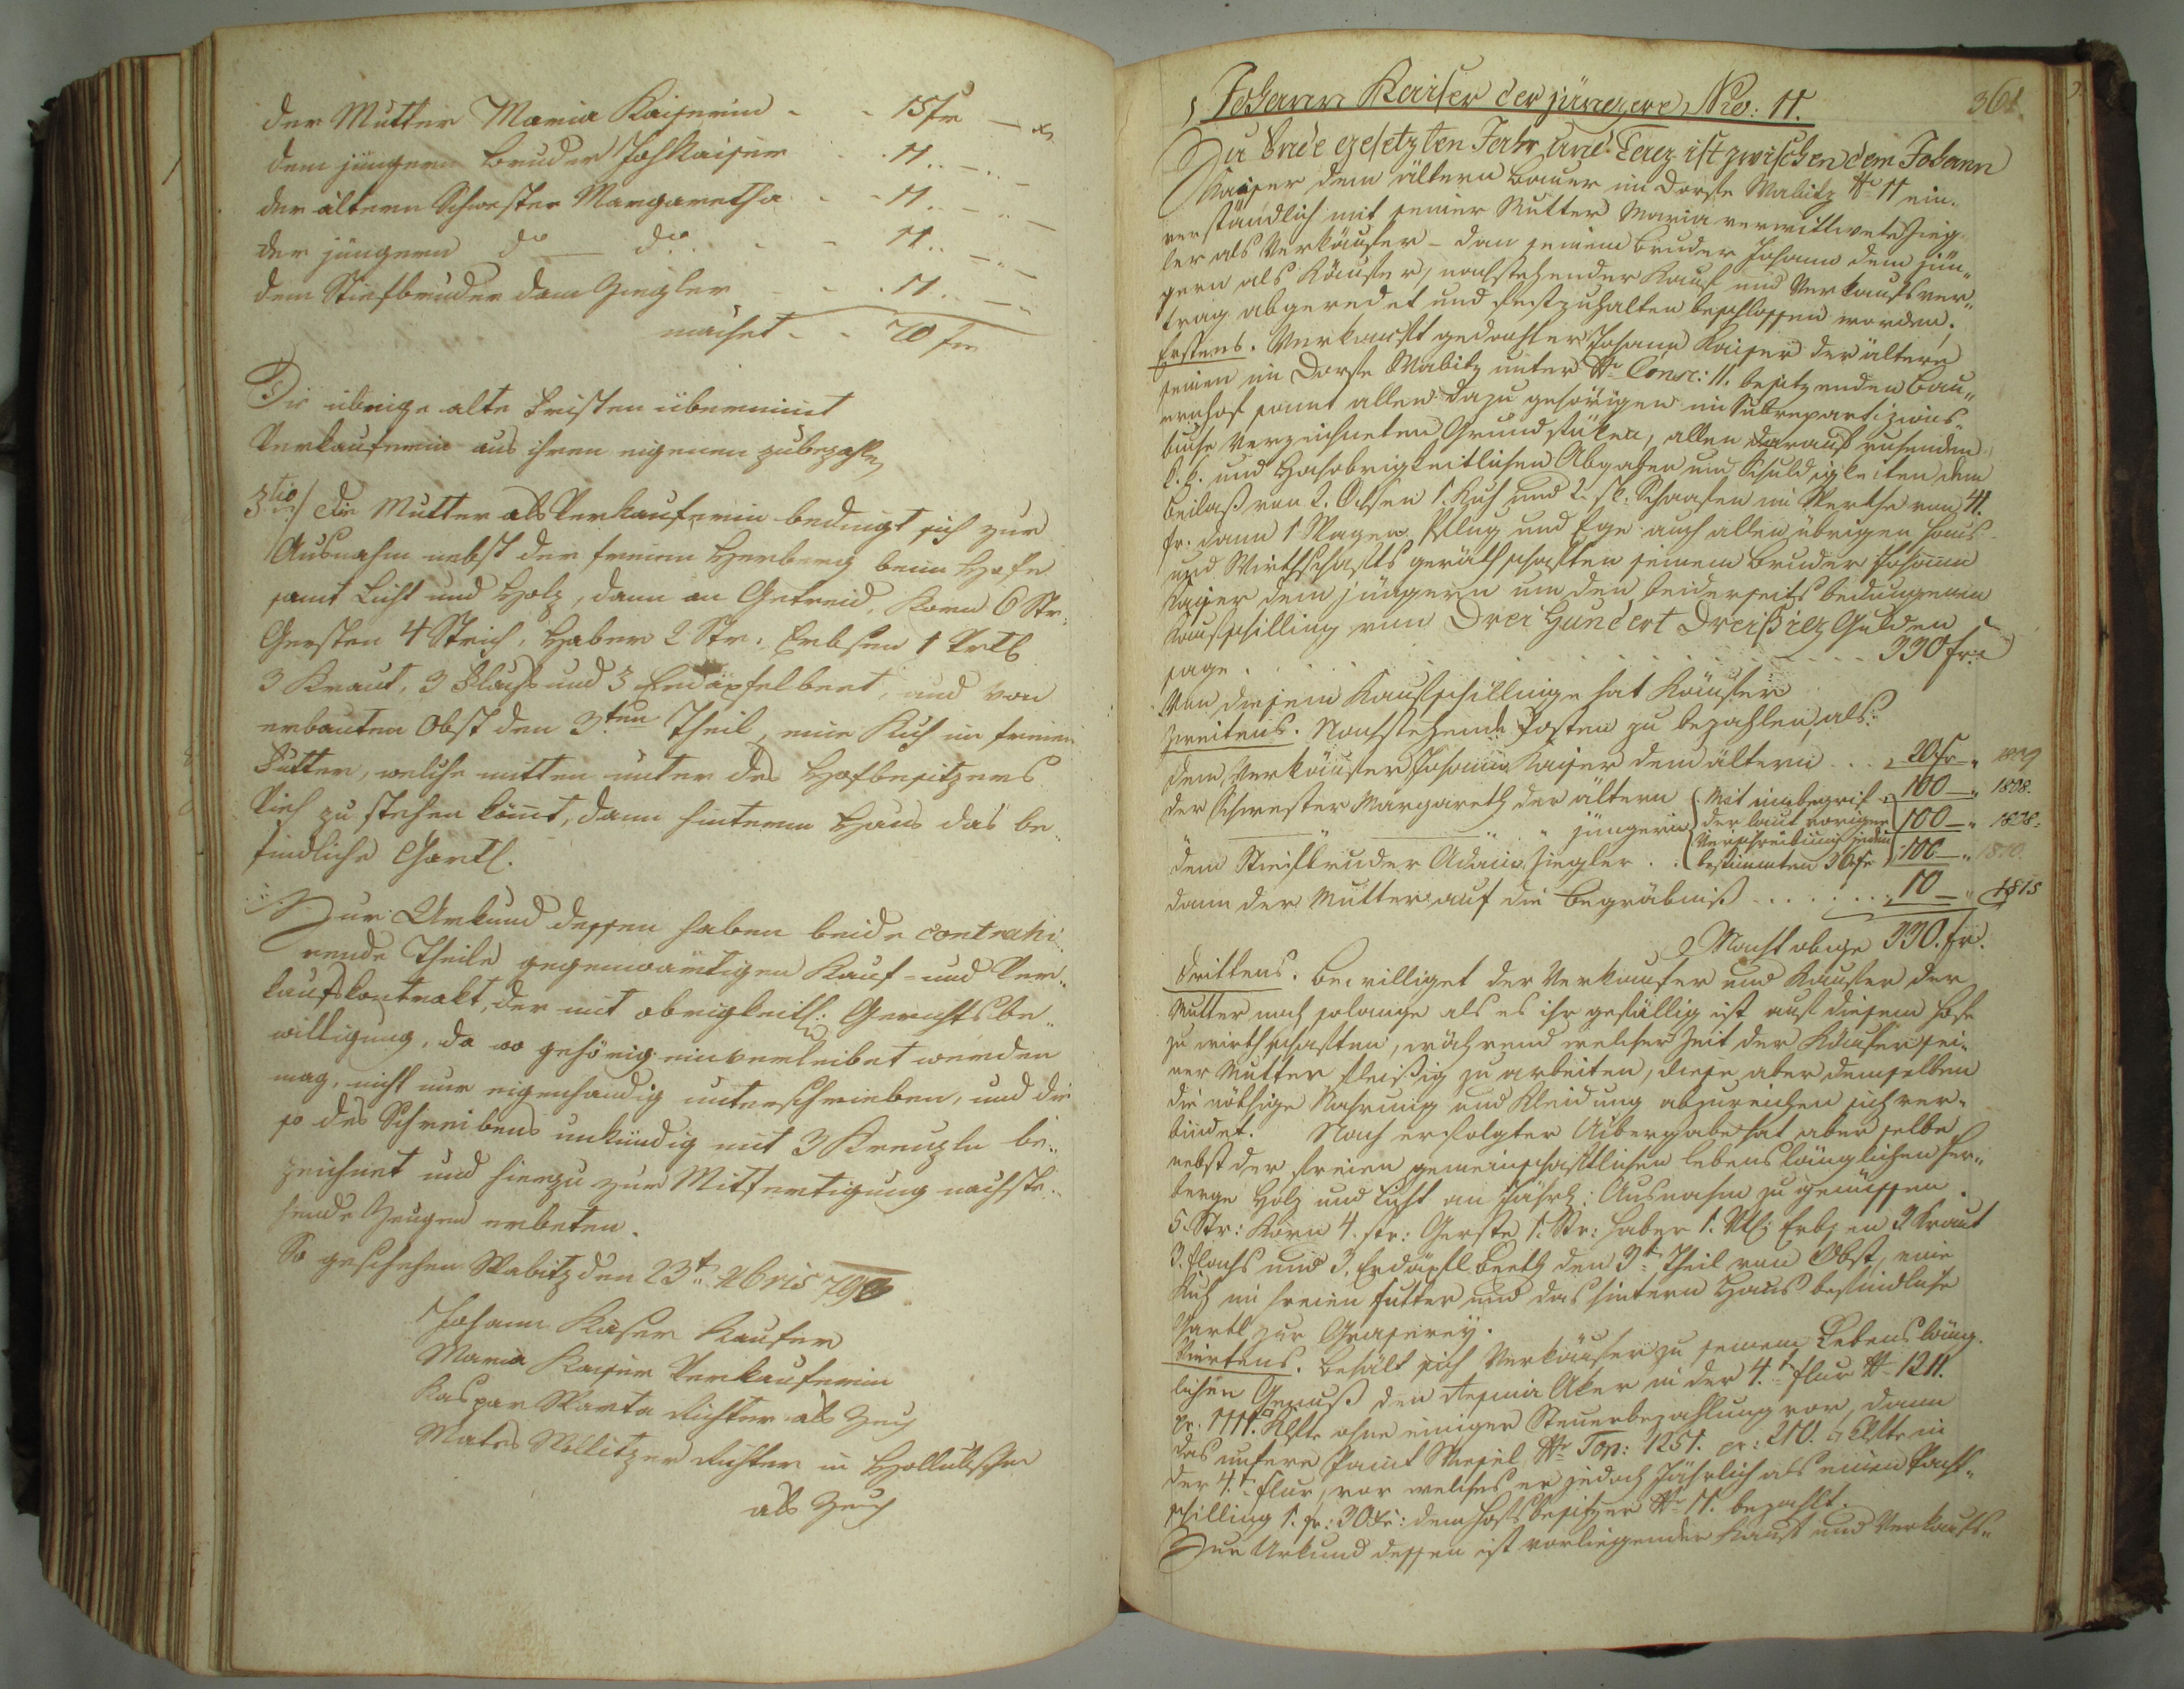 der Mutter Maria Kaiserin - - 15 fr — x
dem jüngern Bruder Joh Kaiser 11 .. — .. —
der ältern Schwester Margaretha - - 11 .. — .. —
der jüngern do — do - - 11 .. — .. —
dem Stiefbruder dam Ziegler - - 11 .. — ..
machet - - 70 fr
Die übrige alte Fristen übernimt
Verkauferin aus ihren eigenen zubezahlen
3tio die Mutter als Verkauferin bedingt sich zur
Ausnahm nebst der freien Herberg beim Hofe
samt Licht und Holz, dann an Getreid, Korn 6 Str.
Gersten 4 Strich, Haber 2 Str: Erbsen 1 Vrtl
3 Kraut, 3 Flachs und 3 Erdäpfelbeet, und von
erbauten Obst den 3ten Theil, eine Kuh im freien
Futter, welche mitten unter des Hofbesitzers
Vieh zu stehen kömt, dann hinterm Haus das be¬
findliche Gartl.
Zur Urkund dessen haben beide contrahi¬
rende Theile gegenwärtigen Kauf- und Ver¬
kaufskontrakt, der mit obrigkeitl: Gerichtsbe¬
willigung, da wo gehörig einverleibet werden
mag, nicht nur eigenhandig unterschrieben, und die
so des Schreibens unkündig mit 3 Kreuzln be¬
zeichnet und hierzu zur Mitfertigung nachste¬
hende Zeugen erbeten.
So geschehen Wabitz den 23t. Xbris 790
Johann Kaiser Kaufer
Maria Kaiser Verkauferin
Kaspar Warta Richter als Zeug
Mates Wollitzer Richter in Hollubschen
als Zeug
361.
Johann Kaiser der jüngere, Nro: 11.
Zu Ende gesetzten Jahr und Tag ist zwischen dem Johann
Kaiser dem ältern Bauer im Dorfe Wabitz No 11 ein¬
verständlich mit seiner Mutter Maria verwittwete Zieg¬
ler als Verkäufer - dan seinem Bruder Johann dem jün¬
gern als Käufer, nachstehender Kauf und Verkaufsver¬
trag abgeredet und festzuhalten beschlossen worden;
Erstens. Verkauft gedachter Johann Kaiser der ältere
seinen im Dorfe Wabitz unter No Consc: 11. besitzenden Bau¬
ernhof samt allen dazu gehörigen im Subrepartizions¬
buche verzeichneten Grundstüken, allen darauf ruhenden
k.k. und Hochobrigkeitlichen Abgaben und Schuldigkeiten dem
Beilaß von 2. Ochsen 1. Kuh und 2. st. Schaafen im Werthe von 41.
fr. dann 1 Wagen Pflug und Ege auch allen übrigen Haus
und Wirthschaftsgeräthschaften seinem Bruder Johann
Kaiser dem jüngern um den beiderseits bedungenen
Kaufschilling von Drei Hundert Dreißig Gulden
sage . . . . . . 330 fr.
Von diesem Kaufschillinge hat Käufer
Zweitens. Nachstehende Posten zu bezahlen, als:
dem Verkäufer Johann Kaiser dem ältern . . . 20 fr —
der Schwester Margareth der ältern (Mit innbegrif 100 — „ 1808.
jüngern der laut voriger 100 — „ 1808.
Verschreibung jedem
dem Stiefbruder Adam Ziegler . . bestimmten 36 fr 100 — „ 1810.
dann der Mutter auf die Begräbniß . . . . . . . 10 — „ 1815
Macht obige 330. fr.
Drittens. Bewilliget der Verkaufer und Kaufer der
Mutter noch solange als es ihr gefällig ist auf diesem Hofe
zu wirthschaften, während welcher Zeit der Käufer sei¬
ner Mutter fleißig zu arbeiten, diese aber demselben
die nöthige Nahrung und Kleidung abzureichen sich ver¬
bindet. Nach erfolgter Uibergabe hat aber selbe
nebst der freien gemeinschaftlichen lebenslänglichen Her¬
berge Holz und Licht an Jährl: Ausnahm zu genüssen.
5. Str: Korn 4. str: Gerste 1. Str: Haber 1. Vtl: Erbsen 3 Kraut
3. Flachs und 3. Erdäpfl Beeth den 3t Theil von Obst, eine
Kuh im freien Futter und das hintern Haus befindliche
Gartl zur Graserey.
Viertens. Behält sich Verkäufer zu seinem Lebensläng¬
lichen Genuß den Aker in der 4.t Flur No 1211.
pr: 1111. Klftr ohne einiger Steuerbezahlung vor, dann
das untere Wiesel No Top: 1251. pr: 210. Klftr in
der 4.t Flur, vor welches er jedoch Jährlich als einen Pacht¬
schilling 1. fr: 30 xr: dem Hofsbesitzer No 11. bezahlt.
Zur Urkund dessen ist vorliegender Kauf und Verkaufs¬